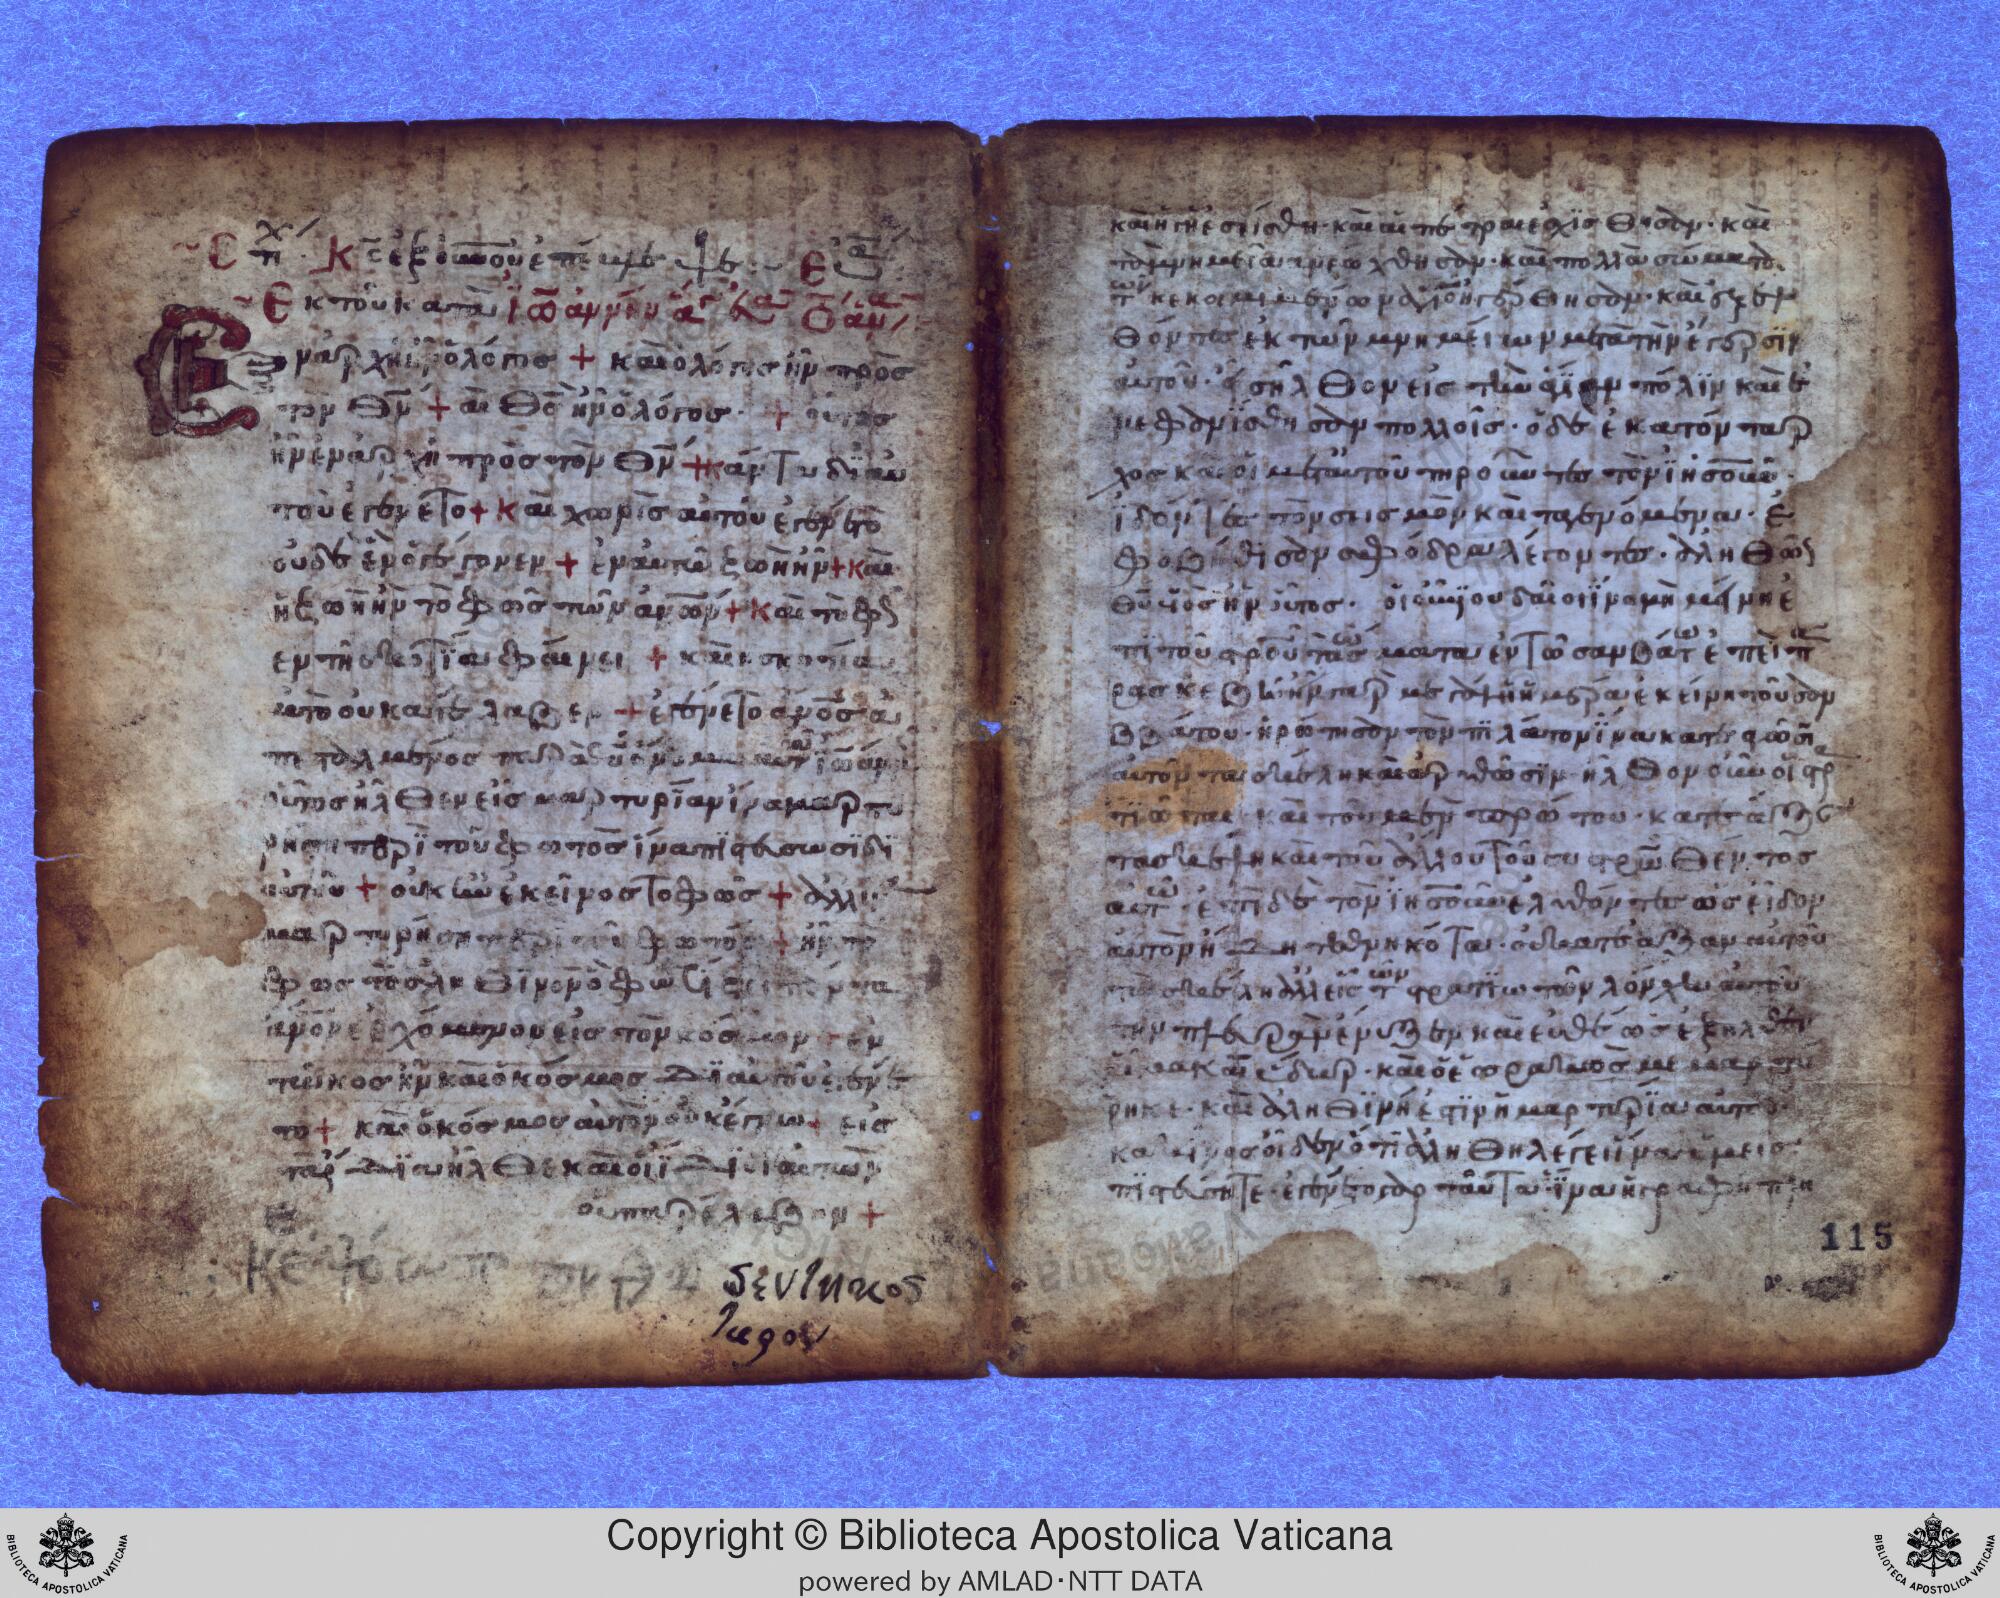 Ἐκ τοῦ κατὰ Ἰωάννην ἁγ
Ἐν ἀρχῇ ἦν ὁ λόγος + καὶ ὁ λόγος ἦν πρὸς
τὸν Θν + καὶ Θς ἦν ὁ λόγος + οὗτος
ἦν ἐν ἀρχῇ πρὸς τὸν Θν + πάντα δϊ αυ
τοῦ ἐγένετο + καὶ χωρὶς αυτοῦ ἐγένετο
οὐδὲ ἓν ὃ γέγονεν + ἐν αυτῶ ζωὴ ἦν + καὶ
ἡ ζωὴ ἦν τὸ φῶς τῶν ἀνων + καὶ τὸ φῶς
ἐν τῆ σκοτία φαίνει + καὶ ἡ σκοτία
αυτὸ οὐ κατέλαβεν + ἐγένετο ἄνος ἀ
πεσταλμένος παρὰ Θυ ὄνομα αυτῶ ἰωάν
οὗτος ἦλθεν εἰς μαρτυρίαν ἵνα μαρτυ
ρήση περὶ τοῦ φωτὸς ἵνα πιστεύσωσϊ δι
αυτοῦ + οὐκ ἦν ἐκεῖνος τὸ φῶς + ἀλλ ἵνα
μαρτυρήση περὶ τοῦ φωτός + ἦν τὸ
φῶς τὸ ἀληθϊνὸν ὃ φωτίζει πάντα
ἄνον ἐρχόμενον εἰς τὸν κόσμον + ἐν
τῶ κόσμω ἦν καὶ ὁ κόσμος δϊ αυτοῦ ἐγένε
το + καὶ ὁ κόσμος αυτὸν οὐκ ἔγνω + εἰς
τὰ ἴδϊα ἦλθε καὶ οἱ ἴδϊοι αυτὸν
οὐ παρέλαβον +
καὶ ἡ γῆ ἐσείσθη · καὶ αἱ πέτραι ἐσχίσθησαν · καὶ
τὰ μνημεῖα ἀνεώχθησαν · καὶ πολλὰ σώματα
τῶν κεκοιμημένων ἁγίων ἠγέρθησαν · καὶ ἐξελ
θόντες ἐκ τῶν μνημείων μετὰ τὴν ἔγερσϊν
αυτοῦ · εἰσῆλθον εἰς τὴν ἁγίαν πόλϊν καὶ ἐ
νεφανϊσθησαν πολλοῖς · ὁ δὲ ἑκατόνταρ
χος καὶ οἱ μετ αυτοῦ τηροῦντες τὸν ἰησοῦν ·
ἰδόντες τὸν σεισμὸν καὶ τὰ γενόμενα · ἐ
φοβήθησαν σφόδρα λέγοντες · ἀληθῶς
Θυ υἱὸς ἦν οὗτος · οἱ οὖν ἰουδαῖοι ἵνα μὴ μείνη ἐ
πὶ τοῦ σταυροῦ τὰ σώματα ἐν τῶ σαββάτω ἐπεὶ πα
ρασκευὴ ἦν ἦν γὰρ μεγάλη ἡ ἡμέρα ἐκείνη τοῦ σαβ
βάτου · ἠρώτησαν τὸν πιλάτον ἵνα κατεαγῶσϊν
αυτῶν τὰ σκέλη καὶ ἀρθῶσϊν · ἦλθον οὖν οἱ στρα
τϊῶται · καὶ τοῦ μὲν πρώτου · κατέαξαν
τὰ σκέλη καὶ τοῦ ἄλλου τοῦ συσταυρωθέντος
αυτῶ · ἐπὶ δὲ τὸν ἰησοῦν ἐλθόντες ὡς εἶδον
αυτὸν ἤδη τεθνηκότα · οὐ κατέαξαν αυτοῦ
τὰ σκέλη ἀλλ εἷς τῶν στρατϊωτῶν λόγχη αυτοῦ
τὴν πλευρὰν ἔνυξεν καὶ εὐθέως ἐξῆλθεν
αἷμα καὶ ὕδωρ · καὶ ὁ ἑωρακὼς μεμαρτύ
ρηκε · καὶ ἀληθϊνή ἐστϊν ἡ μαρτυρία αυτοῦ ·
κακεῖνος οἶδεν ὅτϊ ἀληθῆ λέγει ἵνα ὑμεῖς
πϊστεύσητε · ἐγένετο γὰρ ταῦτα · ἵνα ἡ γραφὴ πλη
115